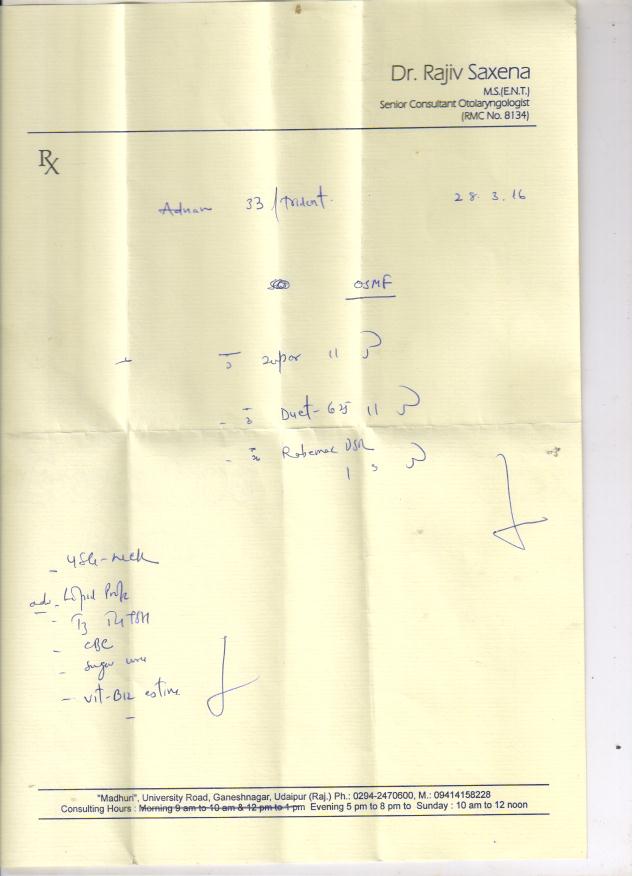 Dr. Rajiv Saxena
M.S.(E.N.T.)
Senior Consultant Otolaryngologist
(RMC No. 8134)
Rx
Adnan 33/Trident.
28.3.16
OSMF
Duet-625 11 5
Rabemac DSR
1 5
- USG-neck
adv. Lipid Profile
- T3 T4 TSH
- CBC
- Sugar
- Vit-B12
"Madhuri", University Road, Ganeshnagar, Udaipur (Raj.) Ph.: 0294-2470600, M.: 09414158228
Consulting Hours : Morning 9 am to 10 am & 12 pm to 1 pm Evening 5 pm to 8 pm to Sunday : 10 am to 12 noon